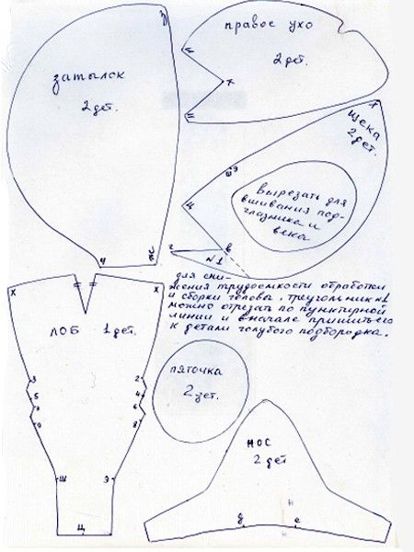 затылок
2 дет.
правое ухо
2 дет.
х
щека
2 дет.
х
Вырезать для
вшивания под-
глазника и
века
ц
г
в
№1
ч
для сни-
жения трудоемкости обработки
и сборки головы, треугольник №1
можно отрезать по пунктирной
линии и вначале пришить его
к детали голубого подбородка.
х
х
ЛОБ 1 дет.
3
5
7
9
2
4
6
8
ш
э
ц
пяточка
2 дет.
нос
2 дет
н
н
д
е